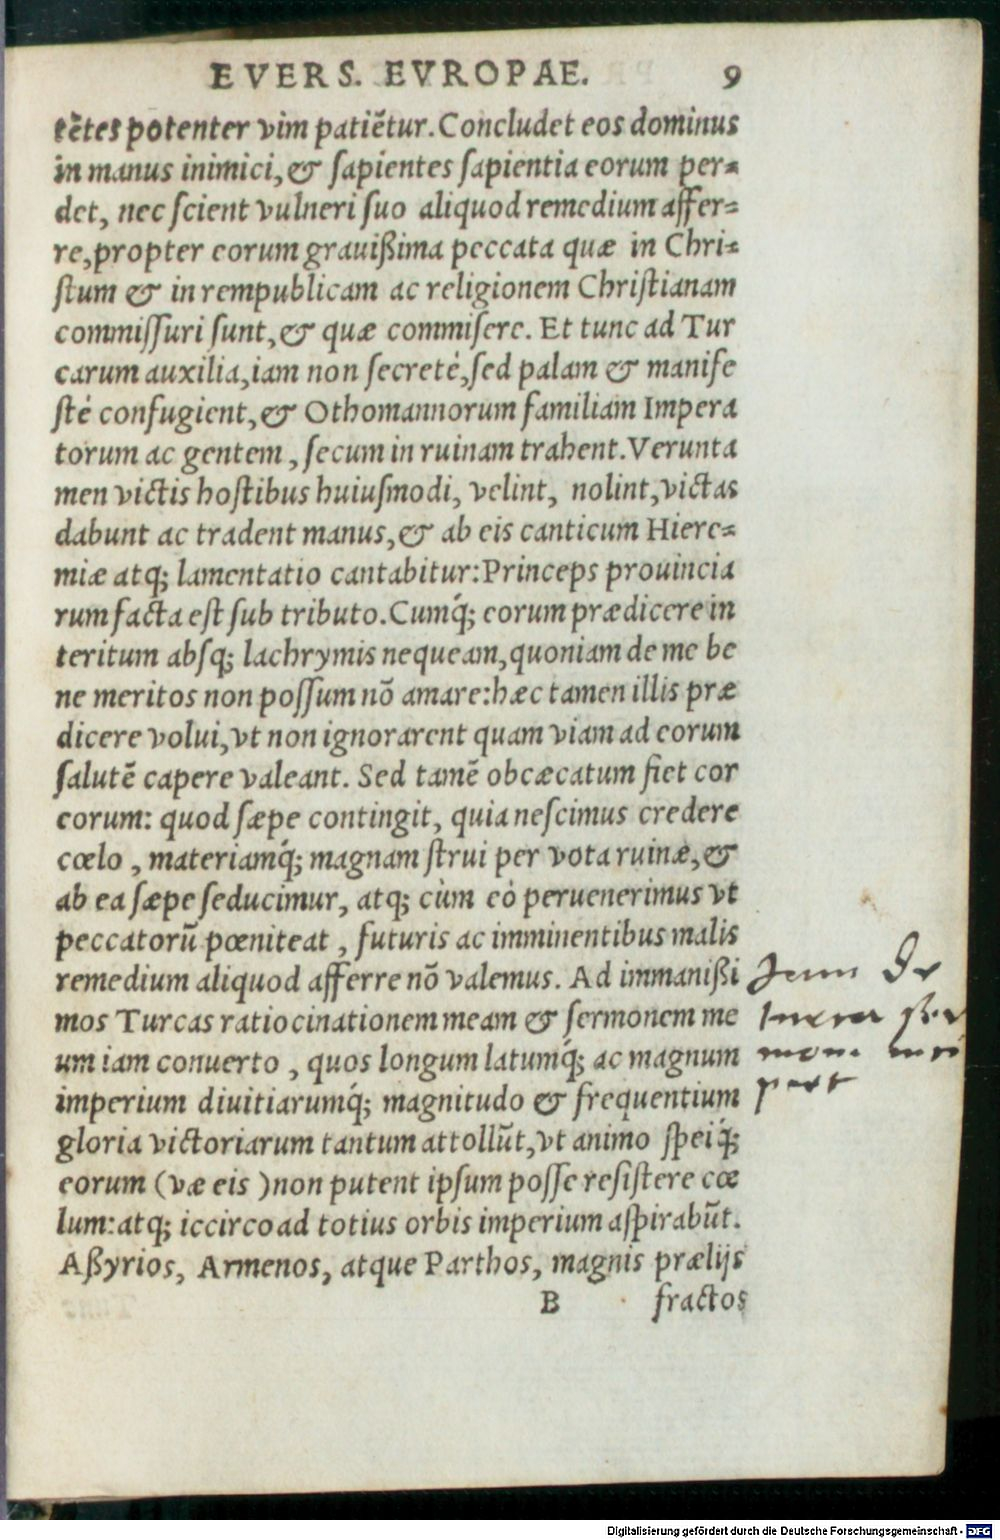 EVERS. EVROPAE. 9
tētes potenter vim patiētur. Concludet eos dominus
in manus inimici, & ſapientes ſapientia eorum per⸗
det, nec ſcient vulneri ſuo aliquod remedium affer⸗
re, propter eorum grauißima peccata quæ in Chri⸗
ſtum & in rempublicam ac religionem Chriſtianam
commiſſuri ſunt, & quæ commiſere. Et tunc ad Tur
carum auxilia, iam non ſecreté, ſed palam & manife
ſté confugient, & Othomannorum familiam Impera
torum ac gentem, ſecum in ruinam trahent. Verunta
men victis hoſtibus huiuſmodi, velint, nolint, victas
dabunt ac tradent manus, & ab eis canticum Hiere⸗
miæ atq; lamentatio cantabitur: Princeps prouincia
rum facta eſt ſub tributo. Cumq́; eorum prædicere in
teritum abſq; lachrymis nequeam, quoniam de me be
ne meritos non poſſum nō amare: hæc tamen illis præ
dicere volui, vt non ignorarent quam viam ad eorum
ſalutē capere valeant. Sed tamē obcæcatum fiet cor
eorum: quod ſæpe contingit, quia neſcimus credere
cœlo, materiamq́; magnam ſtrui per vota ruinæ, &
ab ea ſæpe ſeducimur, atq; cùm eò peruenerimus vt
peccatorū pœniteat, futuris ac imminentibus malis
remedium aliquod afferre nō valemus. Ad immanißi
mos Turcas ratiocinationem meam & ſermonem me
um iam conuerto, quos longum latumq́; ac magnum
imperium diuitiarumq́; magnitudo & frequentium
gloria victoriarum tantum attollūt, vt animo ſpeiq́;
eorum (væ eis) non putent ipſum poſſe reſiſtere cœ
lum: atq; iccirco ad totius orbis imperium aſpirabūt.
Aßyrios, Armenos, atque Parthos, magnis prælijs
B fractos
Digitalisierung gefördert durch die Deutsche Forschungsgemeinschaft - DFG